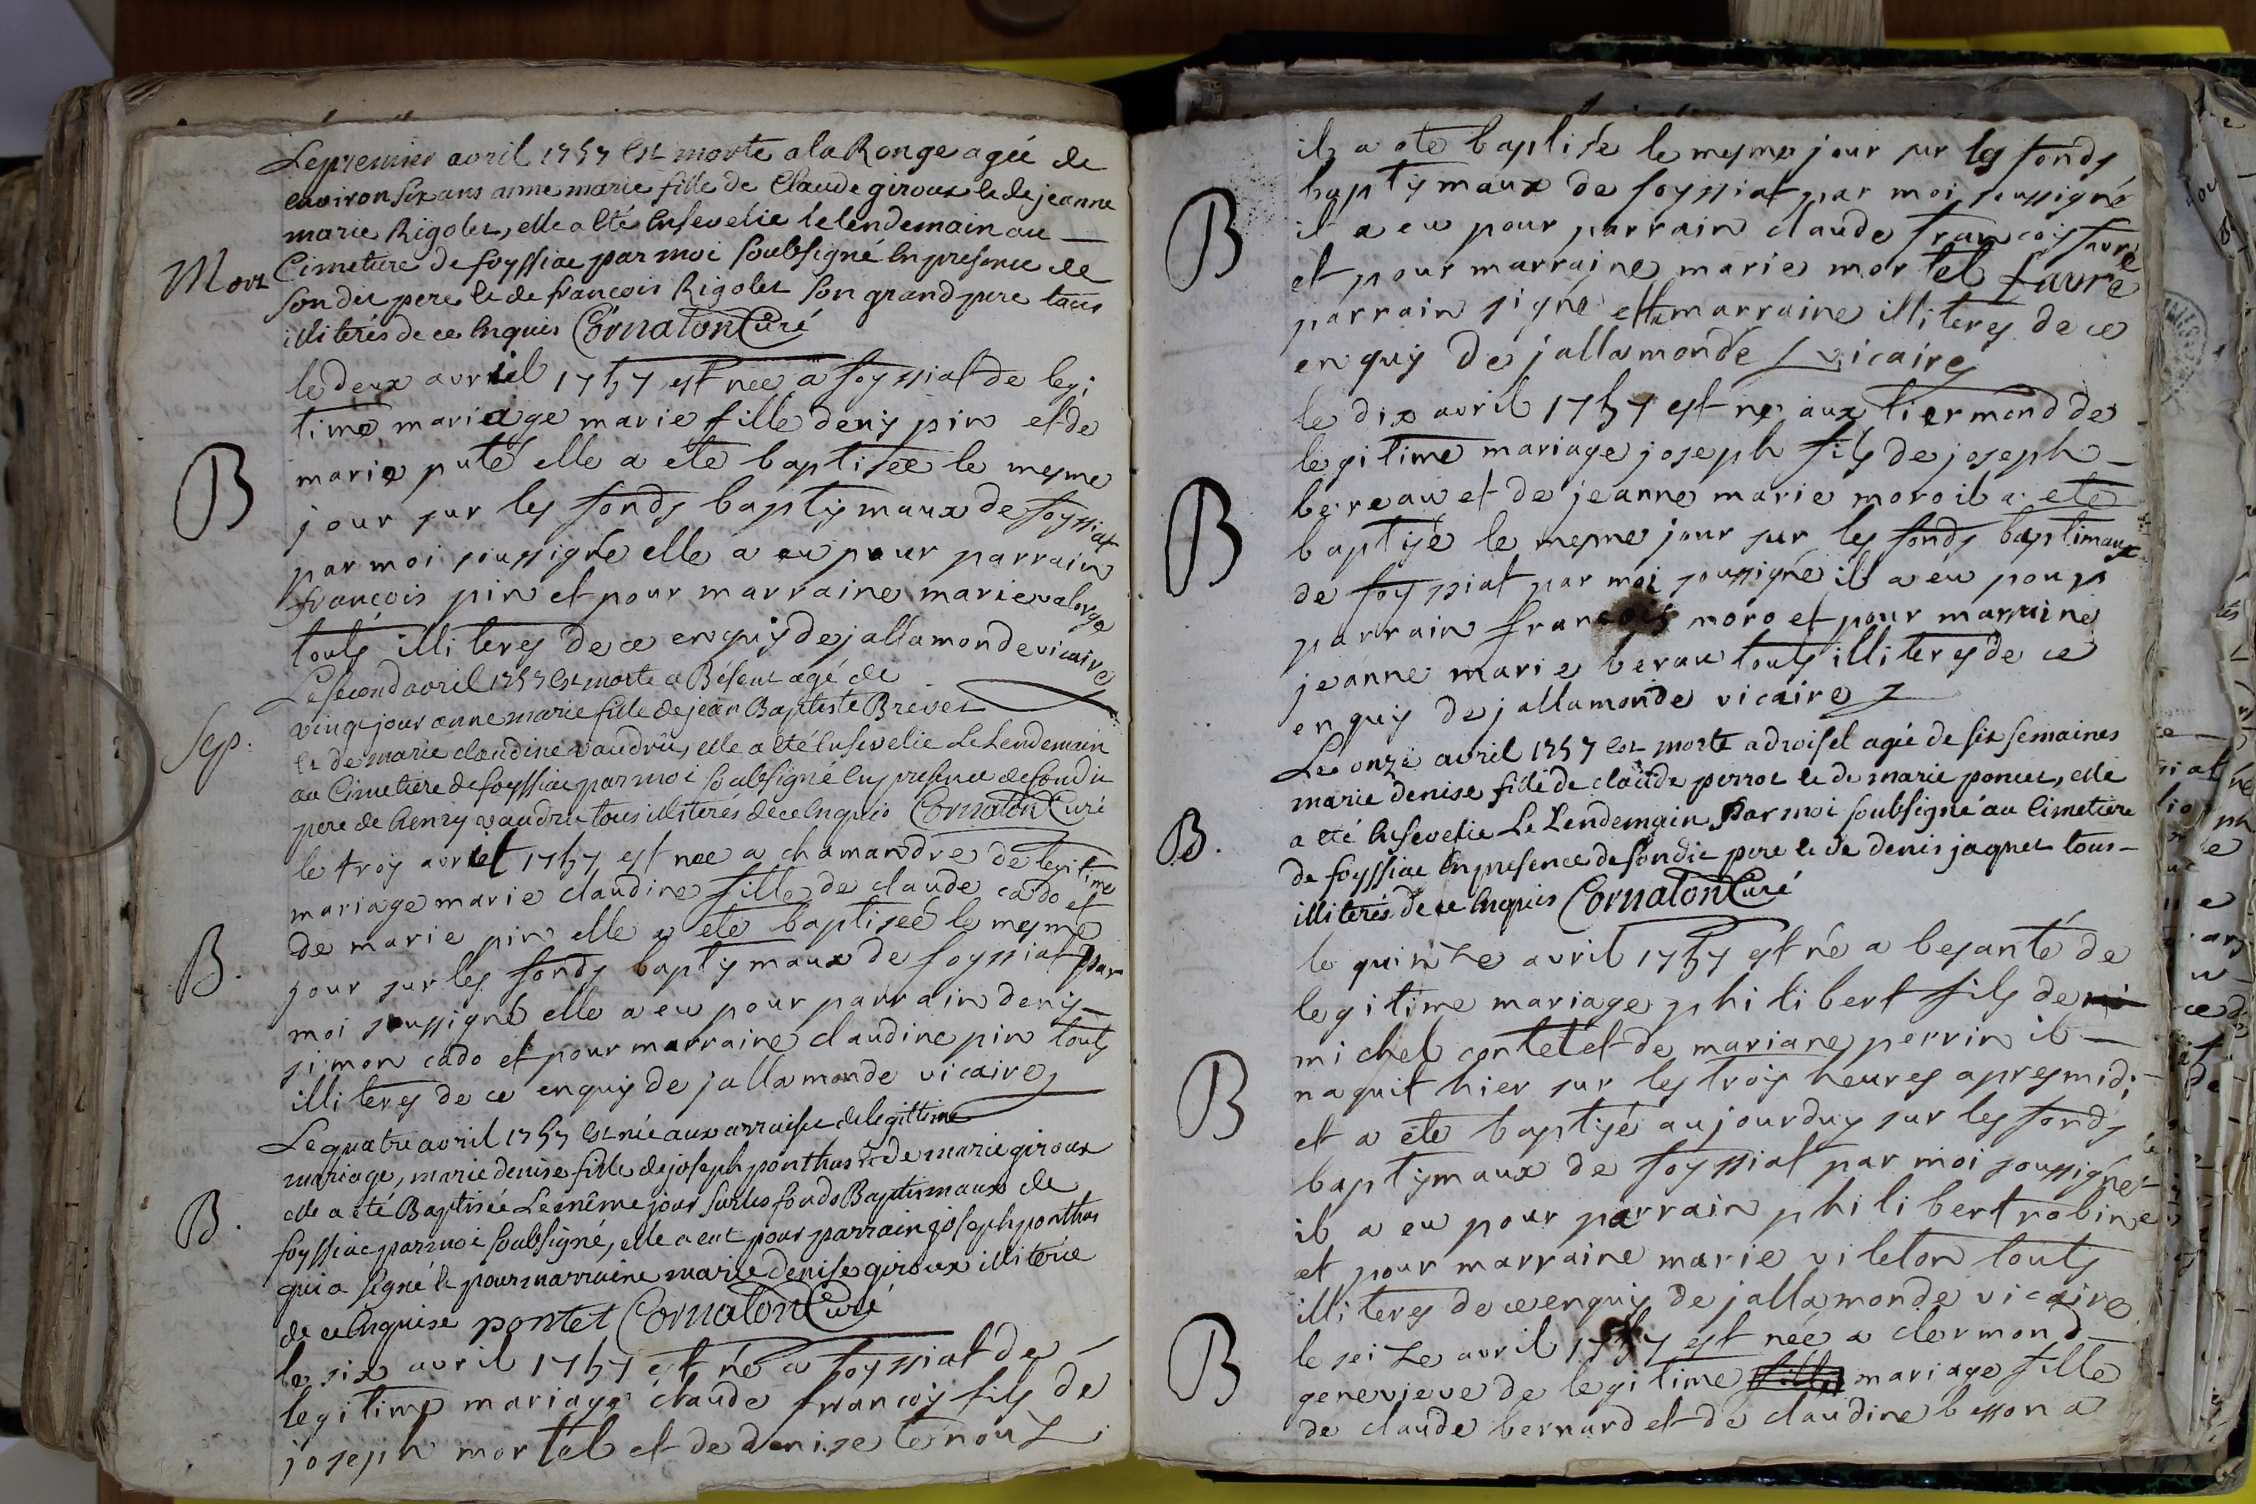 Le premier avril 1757 est morte a la Ronge agée de
environ six ans anne marie fille de Claude giroux et de jeanne
marie Rigolet, elle a eté ensevelie le lendemain au
Mort
Cimetiere de foyssiac par moi soubsigné en presence de
son dit pere et de françois Rigolet son grand pere tous
illiterés de ce enquis Cornaton Curé
le deux avriel 1757 est nee a foyssiat de legi
time mariage marie fille denis pin et de
B
marie puté elle a ete baptisée le mesme
jour sur les fonds baptismaux de foyssiat
par moi soussigne elle a eu pour parrain
francois pin et pour marraine marie valorge
touts illiteres de ce enquis dejallamonde vicaire
Le second avril 1757 est morte a Béseut agé de
vingt jour anne marie fille de jean Baptiste Brevet
Sep.
et de marie claudine vaudru, elle a eté ensevelie Le Lendemain
au Cimetiere de foyssiac par moi soubsigné en presence de son dit
pere de henry vaudru tous illiterés de ce enquis Cornaton Curé
le troys avriel 1757 est nee a chamandre de legitime
mariage marie claudine fille de claude cado et
de marie pin elle a ete baptisée le mesme
B.
jour sur les fonds baptismaux de foyssiat par
moi soussigné elle a eu pour parrain denis
simon cado et pour marraine claudine pin touts
illiteres de ce enquis de jallamonde vicaire
Le quatre avril 1757 est née aux arraisse de legittime
mariage, marie denise fille de joseph ponthus et de marie giroux
B.
elle a eté Baptisée Le même jour sur les fonds Baptismaux de
foyssiac par moi soubsigné, elle a eut pour parrain joseph ponthus
qui a signé et pour marraine marie denise giroux illiterée
de ce enquise pontet Cornaton Curé
le six avril 1757 est né a foyssiat de
legitime mariage claude françois fils de
joseph mortel et de denise tenouz
il a eté baptisé le mesme jour sur les fonds
baptismaux de foyssiat par moi soussigné
B
il a eu pour parrain claude francois favre
et pour marraine marie mortel favre
parrain signé et la marraine illiteres de ce
enquis de jallamonde vicaire
le dix avril 1757 est né aux tiermend de
legitime mariage joseph fils de joseph
B
bereau et de jeanne marie moro il a eté
baptisé le mesme jour sur les fonds baptimaux
de foyssiat par moi soussigné il a eu pour
parrain francois moro et pour marraine
jeanne marie berau touts illiteres de ce
enquis de jallamonde vicaire
Le onze avril 1757 est morte a droisel agée de six semaines
marie denise fille de claude perrot et de marie poncet, elle
B.
a eté ensevelie Le Lendemain Par moi soubsigné au Cimetiere
de foyssiac en presence de son dit pere et de denis jaquet tous
illiterés de ce enquis Cornaton Curé
le quinze avril 1757 est né a besanté de
legitime mariage philibert fils de mi
michel contet et de mariane perrin il
B
naquit hier sur les trois heures apres midi
et a ete baptisé aujourduy sur les fonds
baptismaux de foyssiat par moi soussigné
il a eu pour parrain philibert robin
et pour marraine marie vileton touts
illiteres de ce enquis de jallamonde vicaire
B
le seize avril 1757 est née a clermond
genevieve de legitime mariage fille
de claude bernard et de claudine besson a